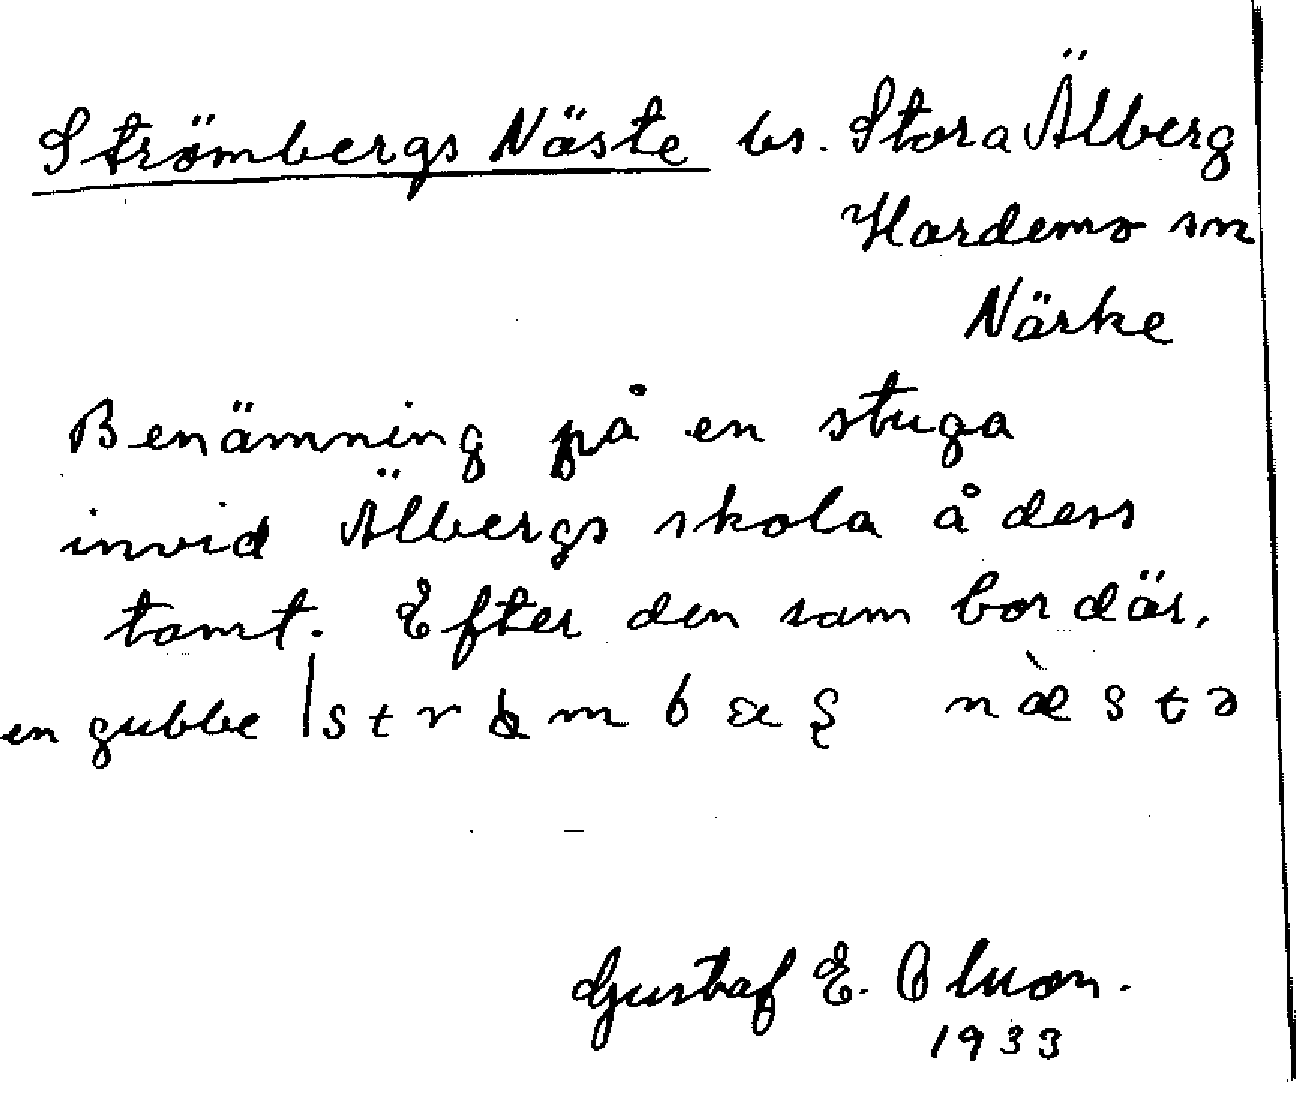 Strömbergs Näste bs. Stora Älberg
Hardemo sn
Närke
Benämning på en stuga
invid Älbergs skola å dess
tomt. Efter den som bor där.
en gubbe
Gustaf E. Olsson.
1933